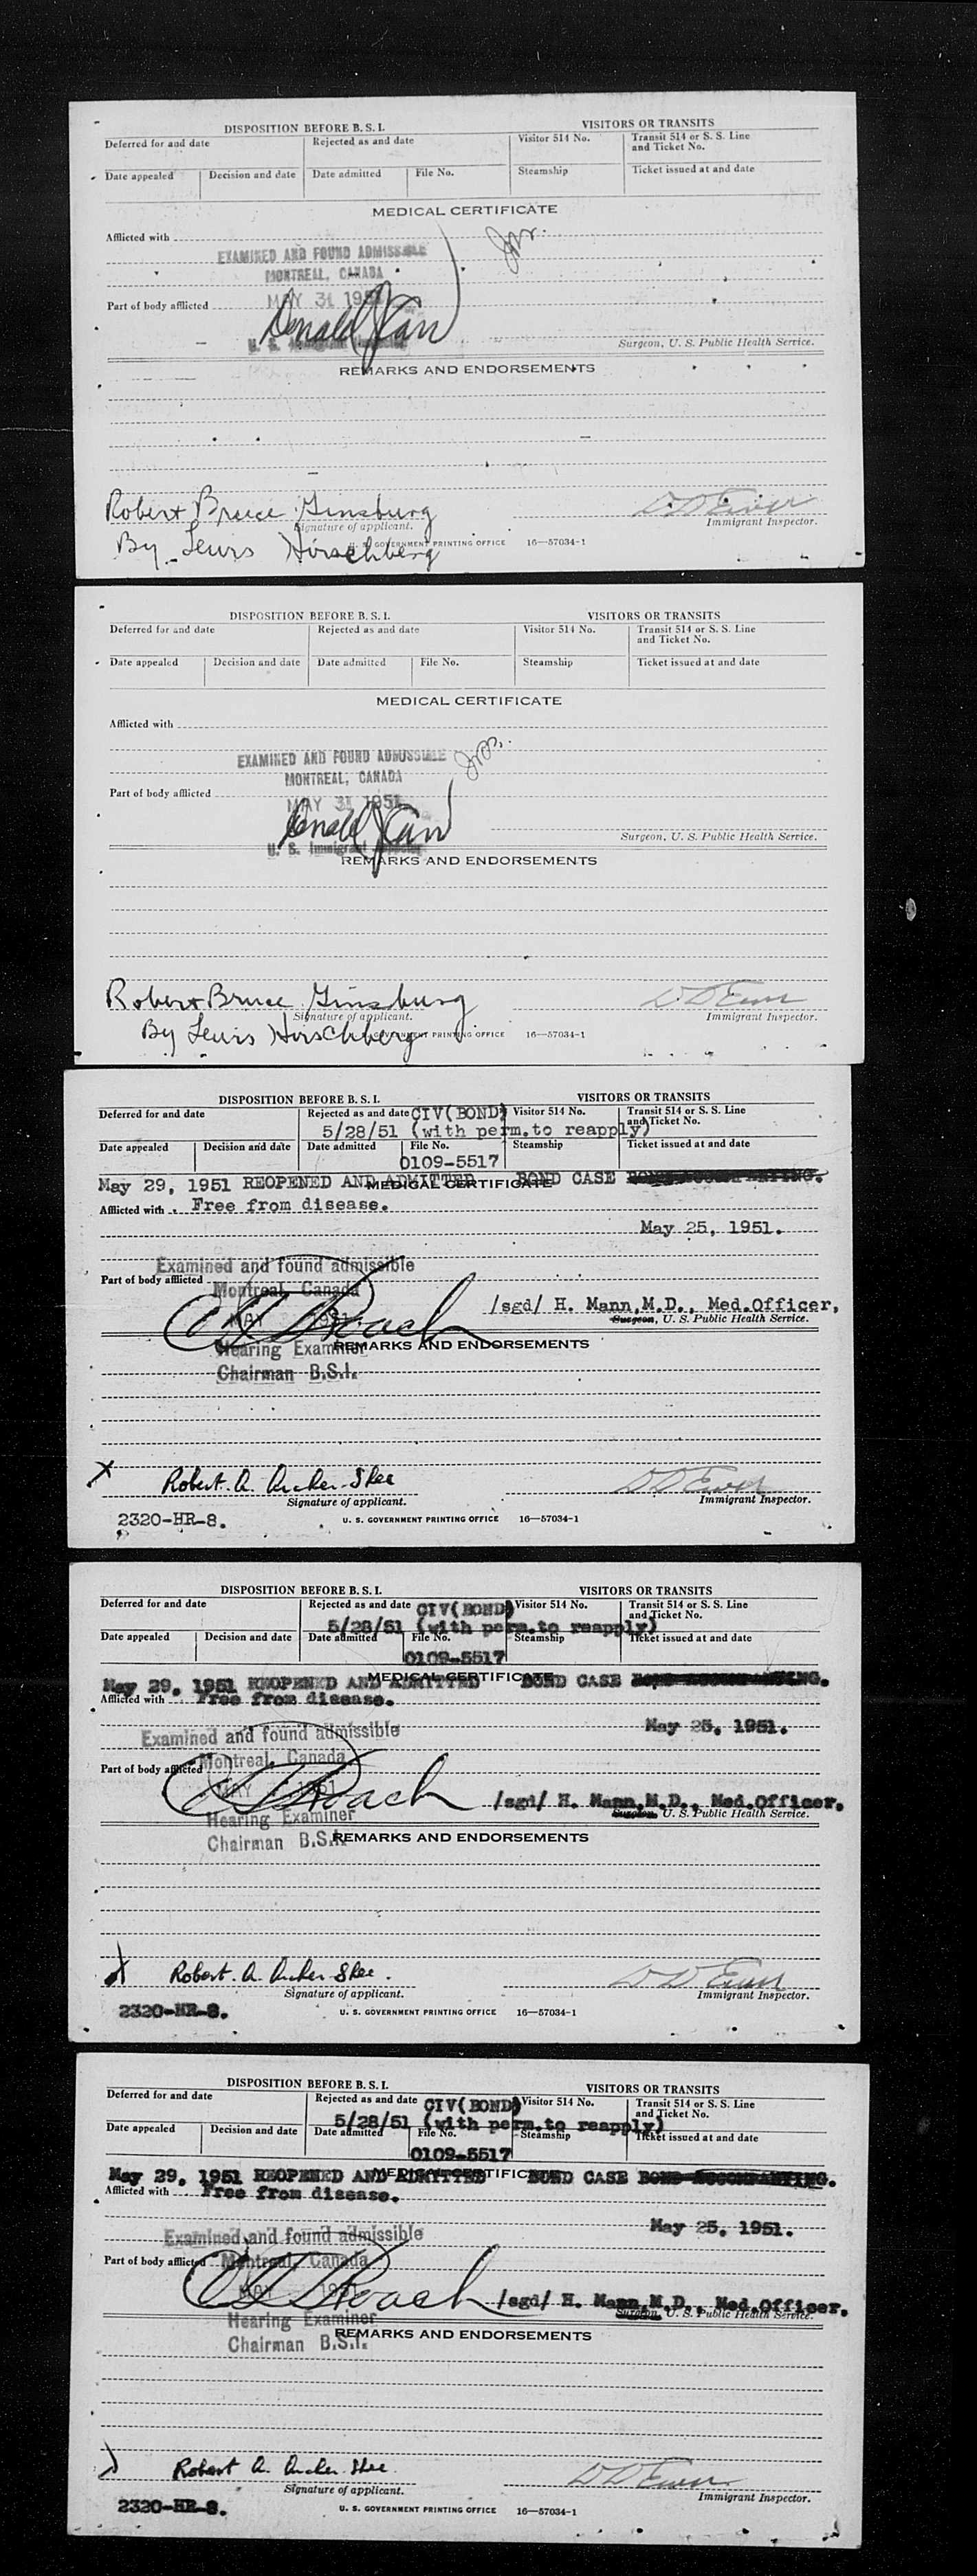 DISPOSITION BEFORE B. S. I. VISITORS OR TRANSITS
Deferred for and date Rejected as and date Visitor 514 No. Transit 514 or S. S. Line and Ticket No.
Date appealed Decision and date Date admitted File No. Steamship Ticket issued at and date
MEDICAL CERTIFICATE
Afflicted with
EXAMINED AND FOUND ADMISSIBLE
MONTREAL, CANADA
MAY 31 1951
Part of body afflicted
Donald J Carr
U. S.
Surgeon, U. S. Public Health Service.
REMARKS AND ENDORSEMENTS
Robert Bruce Ginsburg
Signature of applicant. Immigrant Inspector.
By Lewis Hirschberg
U. S. GOVERNMENT PRINTING OFFICE 16—57034-1
DISPOSITION BEFORE B. S. I. VISITORS OR TRANSITS
Deferred for and date Rejected as and date Visitor 514 No. Transit 514 or S. S. Line and Ticket No.
Date appealed Decision and date Date admitted File No. Steamship Ticket issued at and date
MEDICAL CERTIFICATE
Afflicted with
EXAMINED AND FOUND ADMISSIBLE
MONTREAL, CANADA
Part of body afflicted
MAY 31 1951
Donald J Carr
U. S. Immigrant
Surgeon, U. S. Public Health Service.
REMARKS AND ENDORSEMENTS
Robert Bruce Ginsburg
Signature of applicant. Immigrant Inspector.
By Lewis Hirschberg
GOVERNMENT PRINTING OFFICE 16—57034-1
DISPOSITION BEFORE B. S. I. VISITORS OR TRANSITS
Deferred for and date Rejected as and date CIV(BOND) Visitor 514 No. Transit 514 or S. S. Line and Ticket No.
5/28/51 (with perm.to reapply)
Date appealed Decision and date Date admitted File No. Steamship Ticket issued at and date
0109-5517
May 29, 1951 REOPENED AND ADMITTED BOND CASE
MEDICAL CERTIFICATE
Afflicted with Free from disease.
May 25, 1951.
Examined and found admissible
Part of body afflicted
Montreal, Canada
MAY 1951
Roach
/sgd/ H. Mann,M.D., Med.Officer,
Surgeon, U. S. Public Health Service.
Hearing Examiner
REMARKS AND ENDORSEMENTS
Chairman B.S.I.
X Robert. A. Archer-Shee
Signature of applicant. Immigrant Inspector.
2320-HR-8. U. S. GOVERNMENT PRINTING OFFICE 16—57034-1
DISPOSITION BEFORE B. S. I. VISITORS OR TRANSITS
Deferred for and date Rejected as and date CIV(BOND) Visitor 514 No. Transit 514 or S. S. Line and Ticket No.
5/28/51 (with perm.to reapply)
Date appealed Decision and date Date admitted File No. Steamship Ticket issued at and date
0109-5517
May 29, 1951 REOPENED AND ADMITTED BOND CASE
MEDICAL CERTIFICATE
Afflicted with Free from disease.
May 25, 1951.
Examined and found admissible
Montreal, Canada
Part of body afflicted
MAY 1951
Roach
/sgd/ H. Mann,M.D., Med.Officer,
Surgeon, U. S. Public Health Service.
Hearing Examiner
Chairman B.S.I.
REMARKS AND ENDORSEMENTS
X Robert. A. Archer-Shee.
Signature of applicant. Immigrant Inspector.
2320-HR-8. U. S. GOVERNMENT PRINTING OFFICE 16—57034-1
DISPOSITION BEFORE B. S. I. VISITORS OR TRANSITS
Deferred for and date Rejected as and date CIV(BOND) Visitor 514 No. Transit 514 or S. S. Line and Ticket No.
5/28/51 (with perm.to reapply)
Date appealed Decision and date Date admitted File No. Steamship Ticket issued at and date
0109-5517
May 29, 1951 REOPENED AND ADMITTED BOND CASE
MEDICAL CERTIFICATE
Afflicted with Free from disease.
May 25, 1951.
Examined and found admissible
Part of body afflicted
Montreal, Canada
MAY 1951
Roach
/sgd/ H. Mann,M.D., Med.Officer,
Surgeon, U. S. Public Health Service.
Hearing Examiner
REMARKS AND ENDORSEMENTS
Chairman B.S.I.
Robert A. Archer-Shee
Signature of applicant. Immigrant Inspector.
2320-HR-8. U. S. GOVERNMENT PRINTING OFFICE 16—57034-1